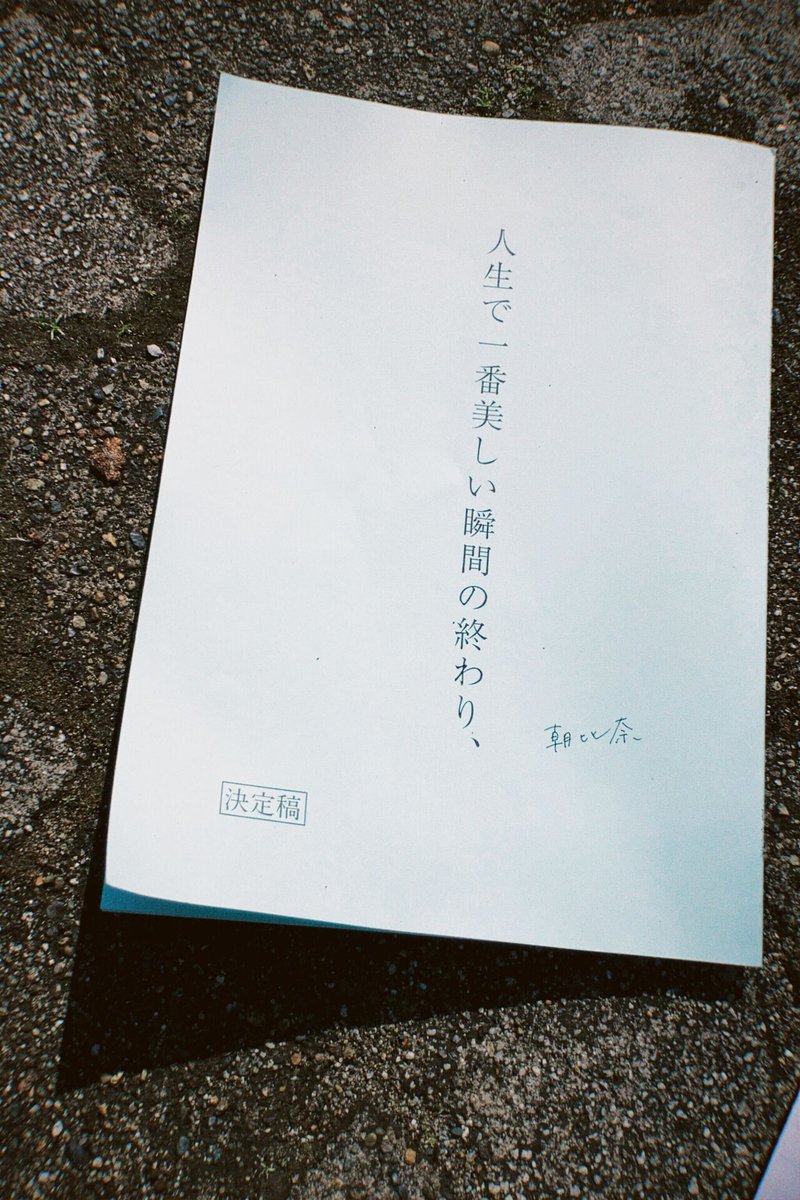 人生で一番美しい瞬間の終わり、
朝比奈
決定稿